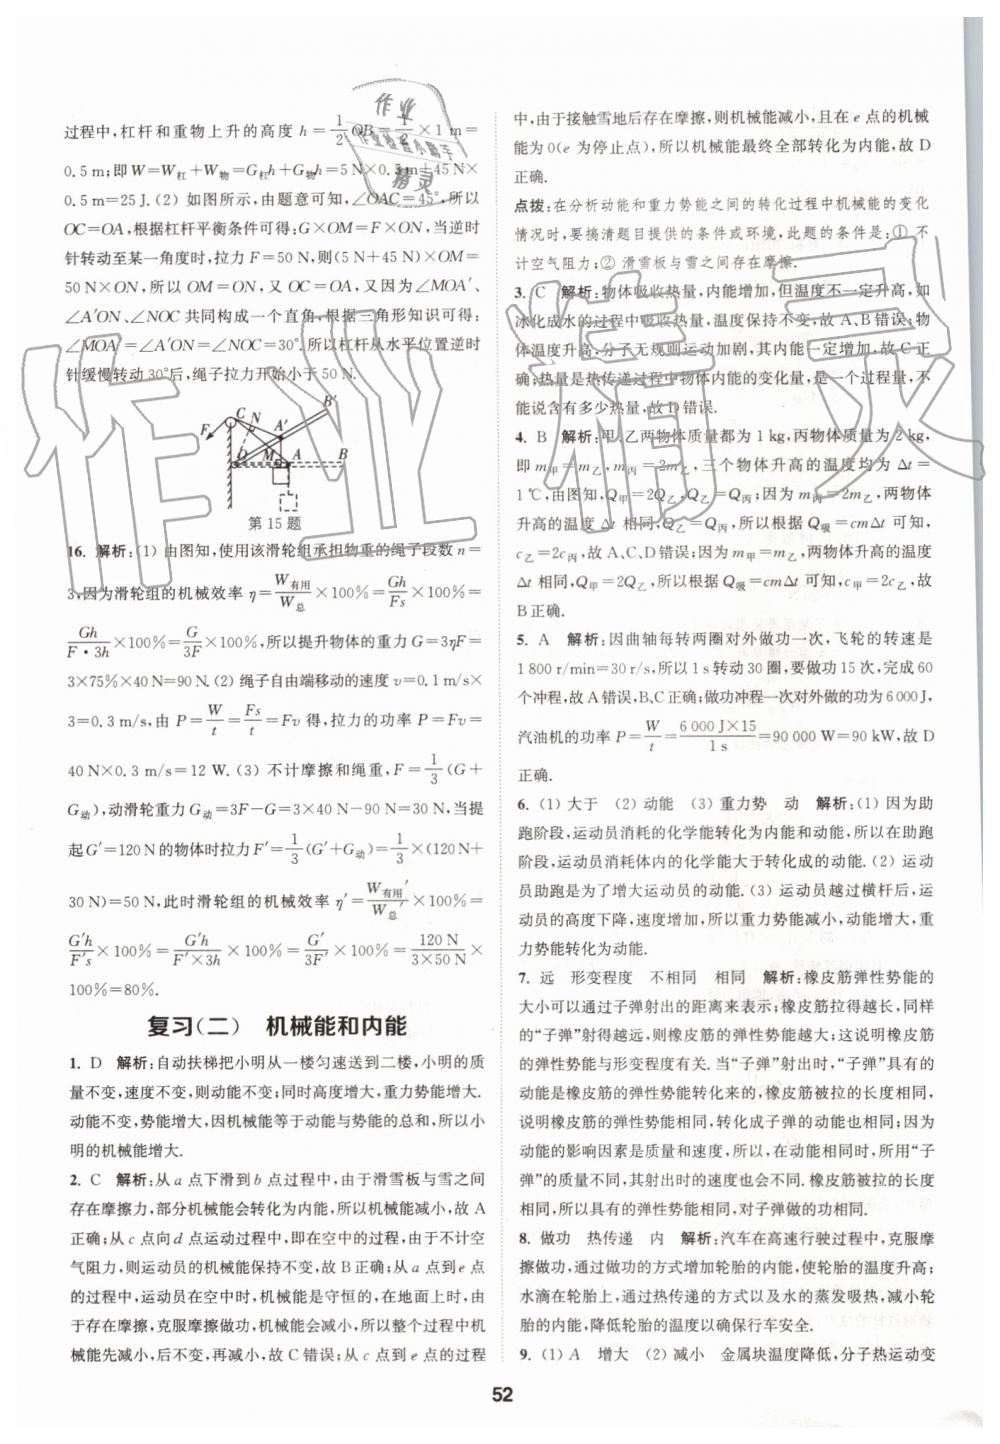 过程中,杠杆和重物上升的高度 h=1/2 OB=1/2×1 m=
0.5 m;即 W=W杠+W物=G杠h+G物h=5 N×0.5 m+45 N×
0.5 m=25 J.(2) 如图所示,由题意可知,∠OAC=45°,所以
OC=OA,根据杠杆平衡条件可得:G×OM=F×ON,当逆时
针转动至某一角度时,拉力 F=50 N,则(5 N+45 N)×OM=
50 N×ON,所以 OM=ON,又 OC=OA,又因为∠MOA′、
∠A′ON、∠NOC 共同构成一个直角,根据三角形知识可得:
∠MOA′=∠A′ON=∠NOC=30°.所以杠杆从水平位置逆时
针缓慢转动 30°后,绳子拉力开始小于 50 N.
F C N A′ B′
O M A B
第 15 题
16. 解析:(1) 由图知,使用该滑轮组承担物重的绳子段数 n=
3,因为滑轮组的机械效率 η=W有用/W总×100%=Gh/Fs×100%=
Gh/F·3h×100%=G/3F×100%,所以提升物体的重力 G=3ηF=
3×75%×40 N=90 N.(2) 绳子自由端移动的速度 v=0.1 m/s×
3=0.3 m/s,由 P=W/t=Fs/t=Fv 得,拉力的功率 P=Fv=
40 N×0.3 m/s=12 W.(3) 不计摩擦和绳重,F=1/3(G+
G动),动滑轮重力 G动=3F-G=3×40 N-90 N=30 N,当提
起 G′=120 N 的物体时拉力 F′=1/3(G′+G动)=1/3×(120 N+
30 N)=50 N,此时滑轮组的机械效率 η′=W有用′/W总′×100%=
G′h/F′s×100%=G′h/F′×3h×100%=G′/3F′×100%=120 N/3×50 N×
100%=80%.
复习(二) 机械能和内能
1. D 解析:自动扶梯把小明从一楼匀速送到二楼,小明的质
量不变,速度不变,则动能不变;同时高度增大,重力势能增大.
动能不变,势能增大,因机械能等于动能与势能的总和,所以小
明的机械能增大.
2. C 解析:从 a 点下滑到 b 点过程中,由于滑雪板与雪之间
存在摩擦力,部分机械能会转化为内能,所以机械能减小,故 A
正确;从 c 点向 d 点运动过程中,即在空中的过程,由于不计空
气阻力,所以运动员的机械能保持不变,故 B 正确;从 a 点到 e 点
的过程中,运动员在空中时,机械能是守恒的,在地面上时,由
于存在摩擦,克服摩擦做功,机械能会减小,所以整个过程中
机械能先减小,后不变,再减小,故 C 错误;从 c 点到 e 点的过程
中,由于接触雪地后存在摩擦,则机械能减小,且在 e 点的机械
能为 0(e 为停止点),所以机械能最终全部转化为内能,故 D
正确.
点拨:在分析动能和重力势能之间的转化过程中机械能的变化
情况时,要搞清题目提供的条件或环境,此题的条件是:① 不
计空气阻力;② 滑雪板与雪之间存在摩擦.
3. C 解析:物体吸收热量,内能增加,但温度不一定升高,如
冰化成水的过程中吸收热量,温度保持不变,故 A、B 错误;物
体温度升高,分子无规则运动加剧,其内能一定增加,故 C 正
确;热量是热传递过程中物体内能的变化量,是一个过程量,不
能说含有多少热量,故 D 错误.
4. B 解析:甲、乙两物体质量都为 1 kg,丙物体质量为 2 kg,
即 m甲=m乙,m丙=2m乙,三个物体升高的温度均为 Δt=
1℃,由图知,Q甲=2Q乙,Q乙=Q丙;因为 m丙=2m乙,两物体
升高的温度 Δt 相同,Q乙=Q丙,所以根据 Q吸=cmΔt 可知,
c乙=2c丙,故 A、C、D 错误;因为 m甲=m乙,两物体升高的温度
Δt 相同,Q甲=2Q乙,所以根据 Q吸=cmΔt 可知,c甲=2c乙,故
B 正确.
5. A 解析:因曲轴每转两圈对外做功一次,飞轮的转速是
1 800 r/min=30 r/s,所以 1 s 转动 30 圈,要做功 15 次,完成 60
个冲程,故 A 错误,B、C 正确;做功冲程一次对外做的功为 6 000 J,
汽油机的功率 P=W/t=6 000 J×15/1 s=90 000 W=90 kW,故 D
正确.
6. (1) 大于 (2) 动能 (3) 重力势 动 解析:(1) 因为助
跑阶段,运动员消耗的化学能转化为内能和动能,所以在助跑
阶段,运动员消耗体内的化学能大于转化成的动能.(2) 运动
员助跑是为了增大运动员的动能.(3) 运动员越过横杆后,运
动员的高度下降,速度增加,所以重力势能减小,动能增大,重
力势能转化为动能.
7. 远 形变程度 不相同 相同 解析:橡皮筋弹性势能的
大小可以通过子弹射出的距离来表示;橡皮筋拉得越长,同样
的“子弹”射得越远,则橡皮筋的弹性势能越大;这说明橡皮筋
的弹性势能与形变程度有关.当“子弹”射出时,“子弹”具有的
动能是橡皮筋的弹性势能转化来的,橡皮筋被拉的长度相同,
说明橡皮筋的弹性势能相同,转化成子弹的动能相同;因为
动能的影响因素是质量和速度,所以,在动能相同时,所用“子
弹”的质量不同,其射出时的速度不相同.橡皮筋被拉的长度
相同,所以具有的弹性势能相同,对子弹做的功相同.
8. 做功 热传递 内 解析:汽车在高速行驶过程中,克服摩
擦做功,通过做功的方式增加轮胎的内能,使轮胎的温度升高;
水滴在轮胎上,通过热传递的方式以及水的蒸发吸热,减小轮
胎的内能,降低轮胎的温度以确保行车安全.
9. (1) A 增大 (2) 减小 金属块温度降低,分子热运动变
52
作业精灵